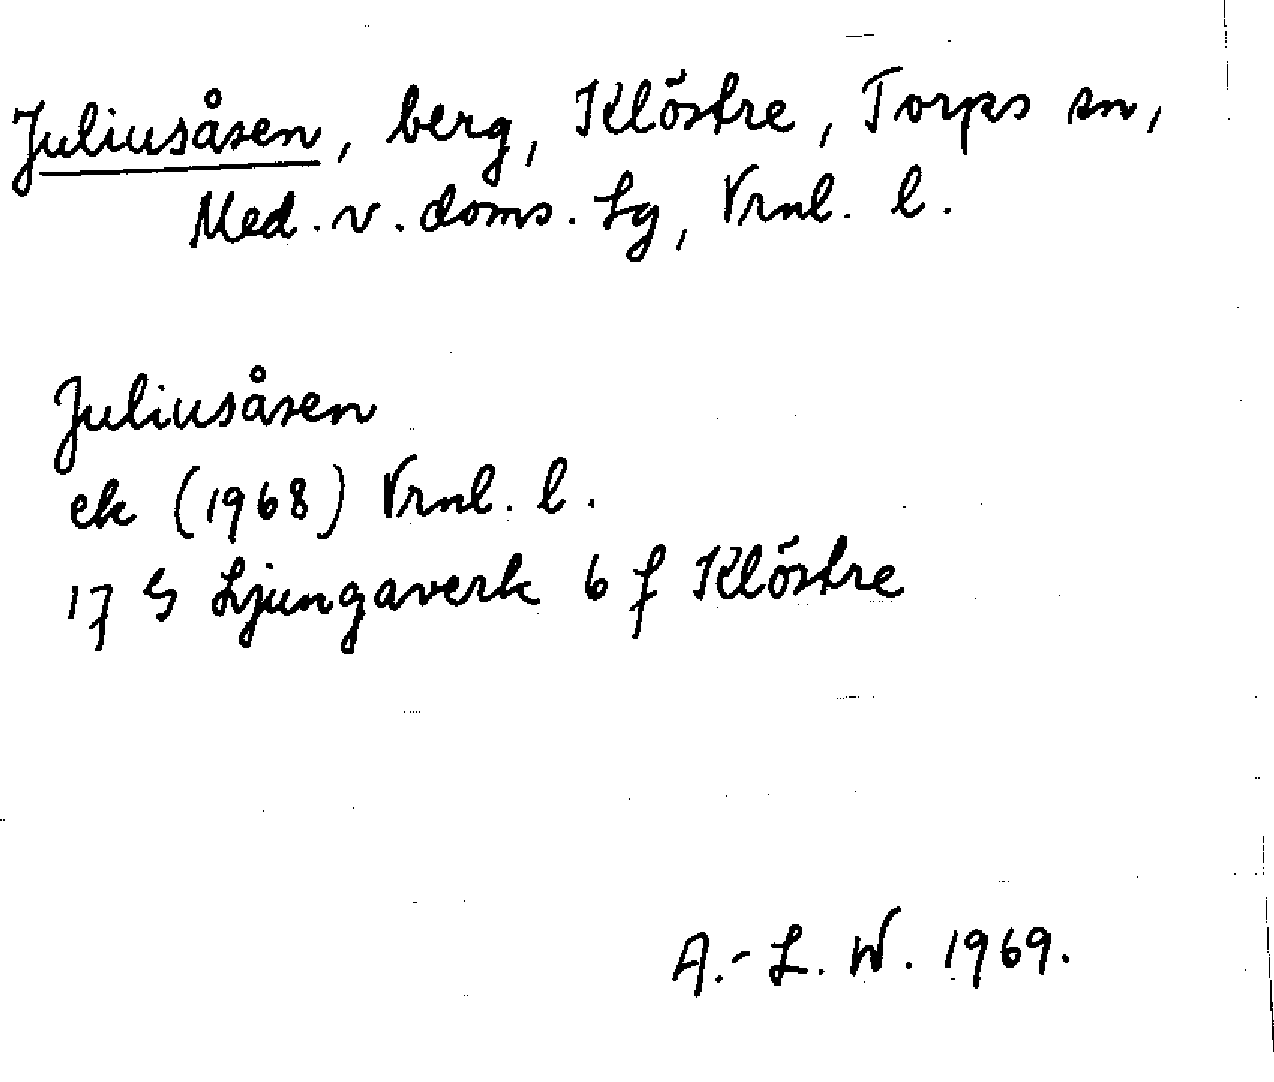 Juliusåsen, berg, Klöstre, Torps sn,
Med. v. doms. Lg, Vrnl. l.
Juliusåsen
ek (1968) Vrnl. l.
17 G Ljungaverk 6 f Klöstre
A.-L. W. 1969.